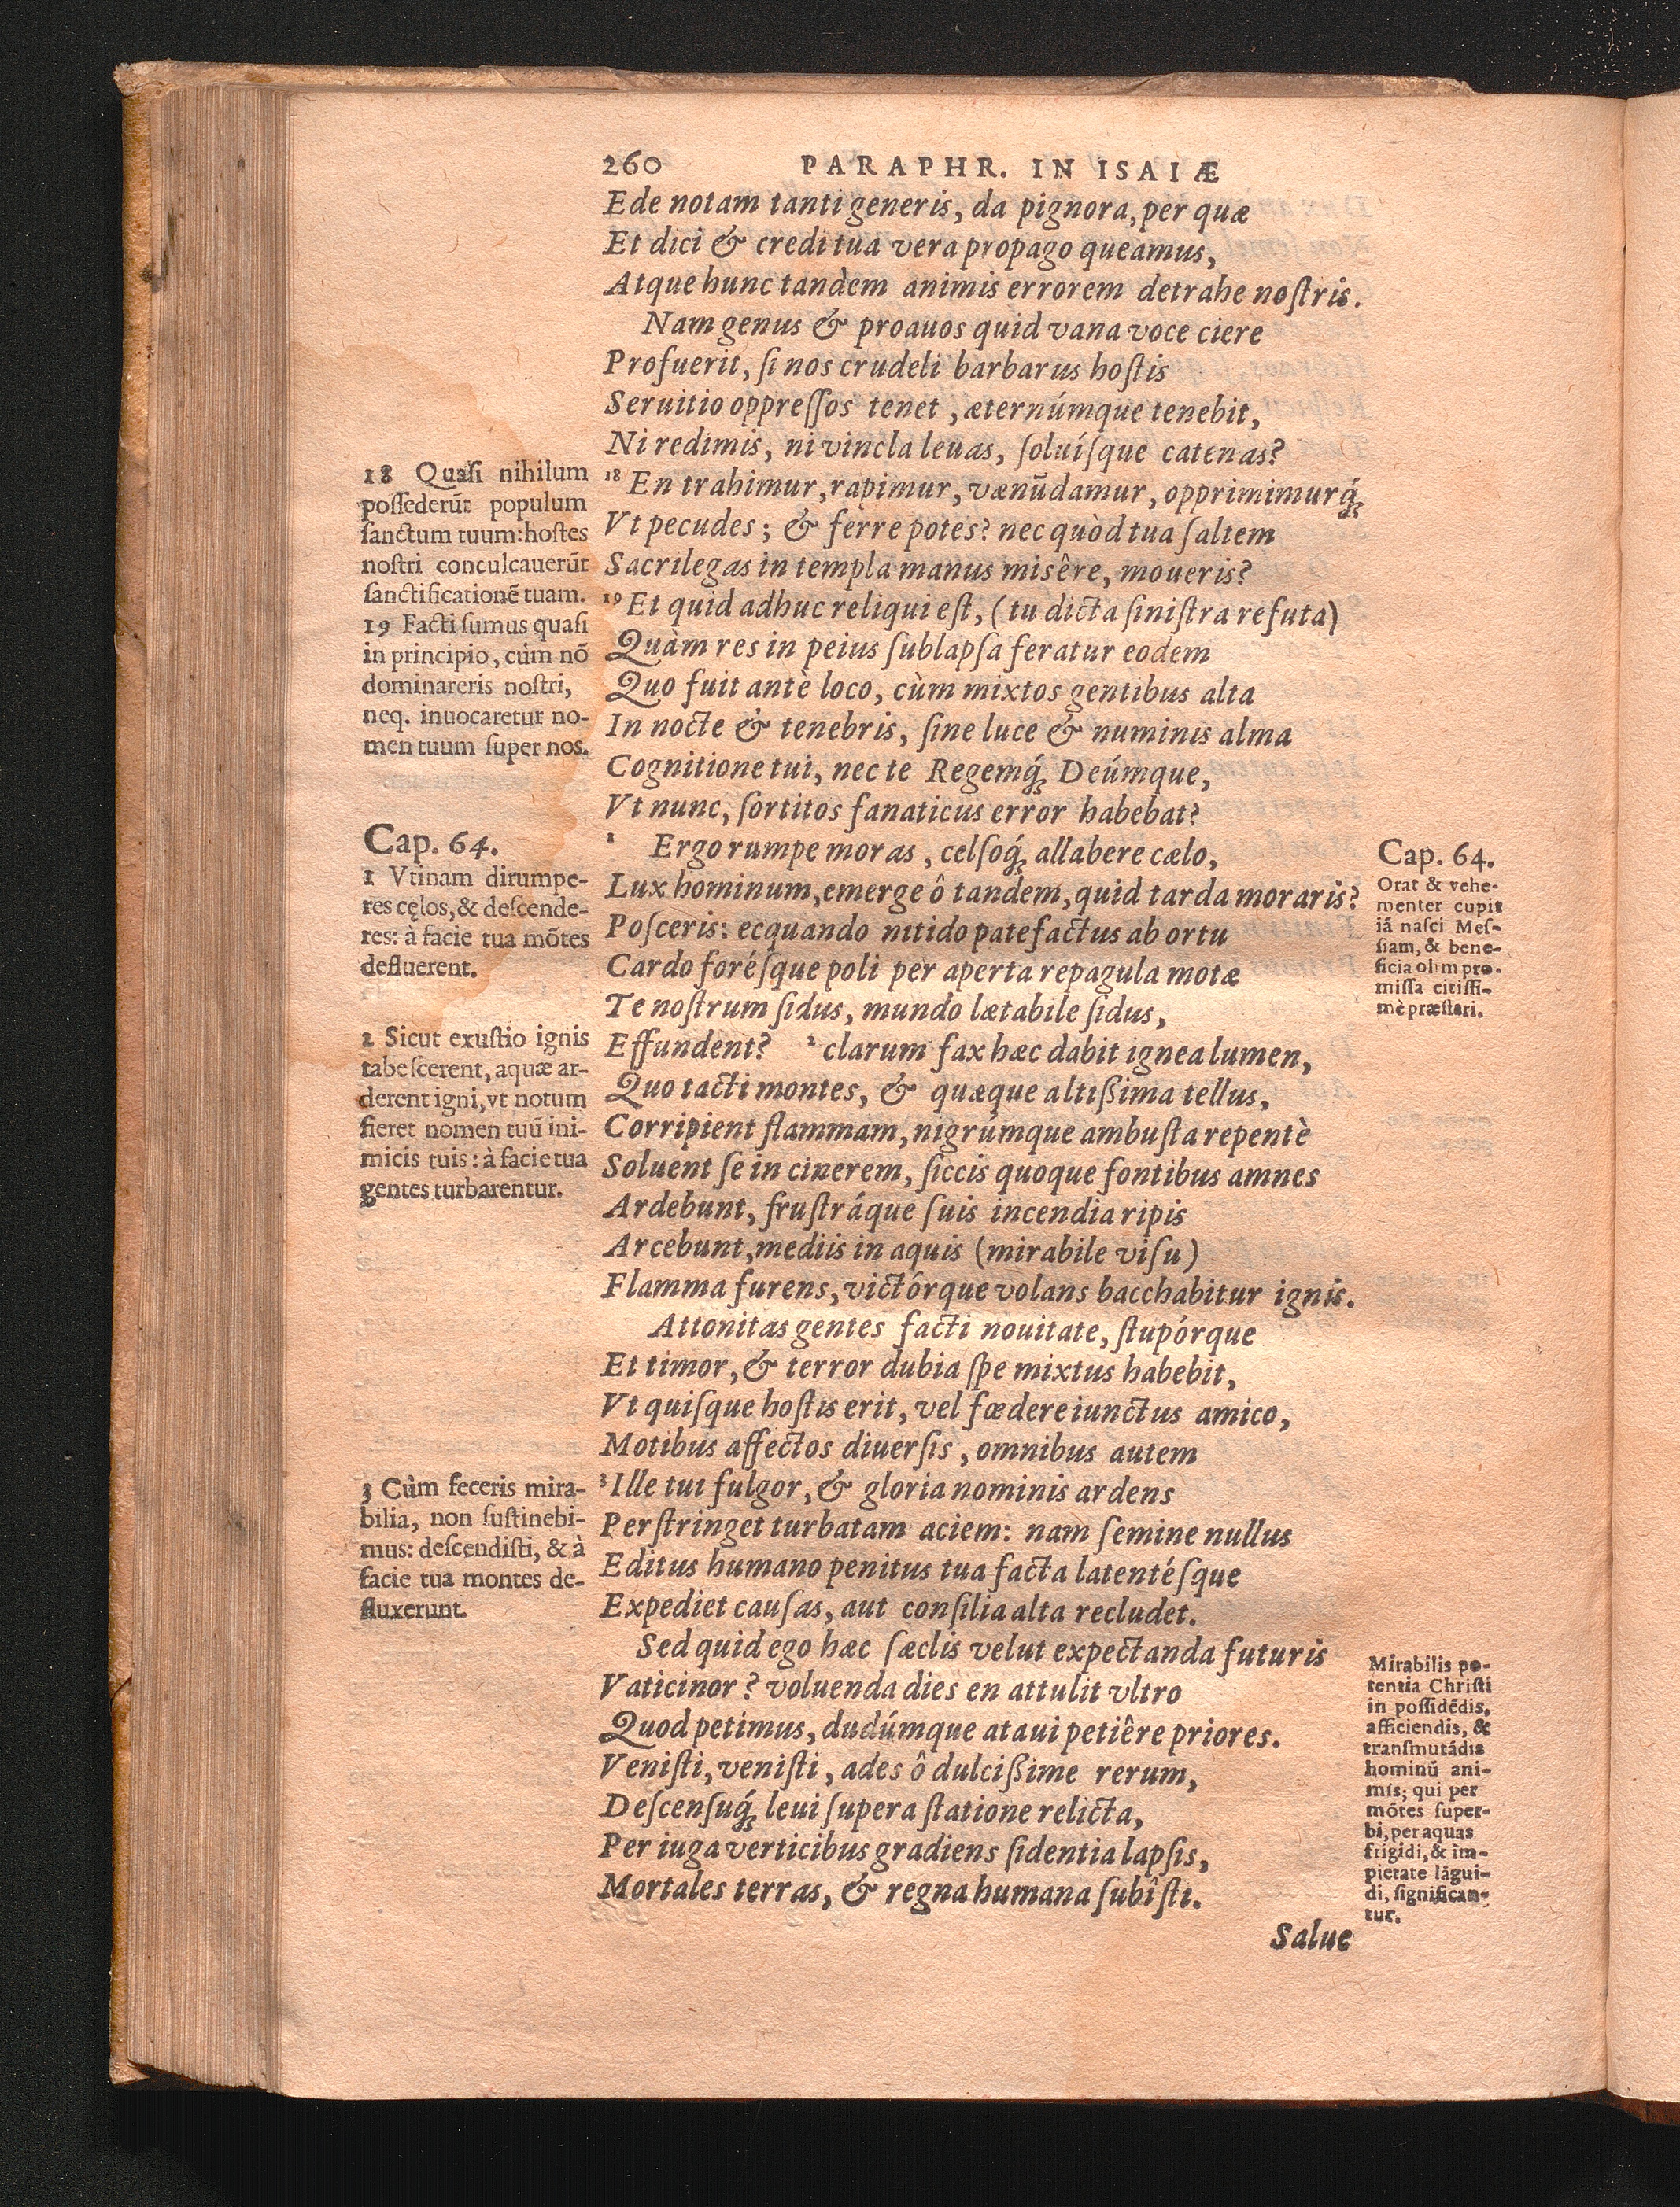 260 PARAPHR. IN ISAIÆ
Ede notam tanti generis, da pignora, per quæ
Et dici & credi tua vera propago queamus,
Atque hunc tandem animis errorem detrahe noſtris.
Nam genus & proauos quid vana voce ciere
Profuerit, ſi nos crudeli barbarus hoſtis
Seruitio oppreſſos tenet, æternúmque tenebit,
Ni redimis, ni vincla leuas, ſoluíſque catenas?
18 En trahimur, rapimur, vænūdamur, opprimimurq́ꝫ
Vt pecudes; & ferre potes? nec quòd tua ſaltem
Sacrilegas in templa manus misêre, moueris?
19 Et quid adhuc reliqui eſt, (tu dicta ſiniſtra refuta)
Quàm res in peius ſublapſa feratur eodem
Quo fuit antè loco, cùm mixtos gentibus alta
In nocte & tenebris, ſine luce & numinis alma
Cognitione tui, nec te Regemq́ꝫ Deúmque,
Vt nunc, ſortitos fanaticus error habebat?
1 Ergo rumpe moras, celſoq́ꝫ allabere cælo,
Lux hominum, emerge ô tandem, quid tarda moraris?
Poſceris: ecquando nitido patefactus ab ortu
Cardo foréſque poli per aperta repagula motæ
Te noſtrum ſidus, mundo lætabile ſidus,
Effundent? 2 clarum fax hæc dabit ignea lumen,
Quo tacti montes, & quæque altißima tellus,
Corripient flammam, nigrúmque ambuſta repentè
Soluent ſe in cinerem, ſiccis quoque fontibus amnes
Ardebunt, fruſtráque ſuis incendia ripis
Arcebunt, mediis in aquis (mirabile viſu)
Flamma furens, victôrque volans bacchabitur ignis.
Attonitas gentes facti nouitate, ſtupórque
Et timor, & terror dubia ſpe mixtus habebit,
Vt quiſque hoſtis erit, vel fœdere iunctus amico,
Motibus affectos diuerſis, omnibus autem
3 Ille tui fulgor, & gloria nominis ardens
Perſtringet turbatam aciem: nam ſemine nullus
Editus humano penitus tua facta latentéſque
Expediet cauſas, aut conſilia alta recludet.
Sed quid ego hæc ſæclis velut expectanda futuris
Vaticinor? voluenda dies en attulit vltro
Quod petimus, dudúmque ataui petiêre priores.
Veniſti, veniſti, ades ô dulcißime rerum,
Deſcenſuq́ꝫ leui ſupera ſtatione relicta,
Per iuga verticibus gradiens ſidentia lapſis,
Mortales terras, & regna humana ſubîſti.
Salue
18 Quaſi nihilum
poſſederūt populum
ſanctum tuum: hoſtes
noſtri conculcauerūt
ſanctificationē tuam.
19 Facti ſumus quaſi
in principio, cùm nō
dominareris noſtri,
neq. inuocaretur no-
men tuum ſuper nos.
Cap. 64.
1 Vtinam dirumpe-
res cęlos, & deſcende-
res: à facie tua mōtes
defluerent.
2 Sicut exuſtio ignis
tabeſcerent, aquæ ar-
derent igni, vt notum
fieret nomen tuū ini-
micis tuis: à facie tua
gentes turbarentur.
3 Cùm feceris mira-
bilia, non ſuſtinebi-
mus: deſcendiſti, & à
facie tua montes de-
fluxerunt.
Cap. 64.
Orat & vehe-
menter cupit
iā naſci Meſ-
ſiam, & bene-
ficia olim pro-
miſſa citiſſi-
mè præſtari.
Mirabilis po-
tentia Chriſti
in poſſidēdis,
afficiendis, &
tranſmutādis
hominū ani-
mis; qui per
mōtes ſuper-
bi, per aquas
frigidi, & im-
pietate lāgui-
di, ſignifican-
tur.